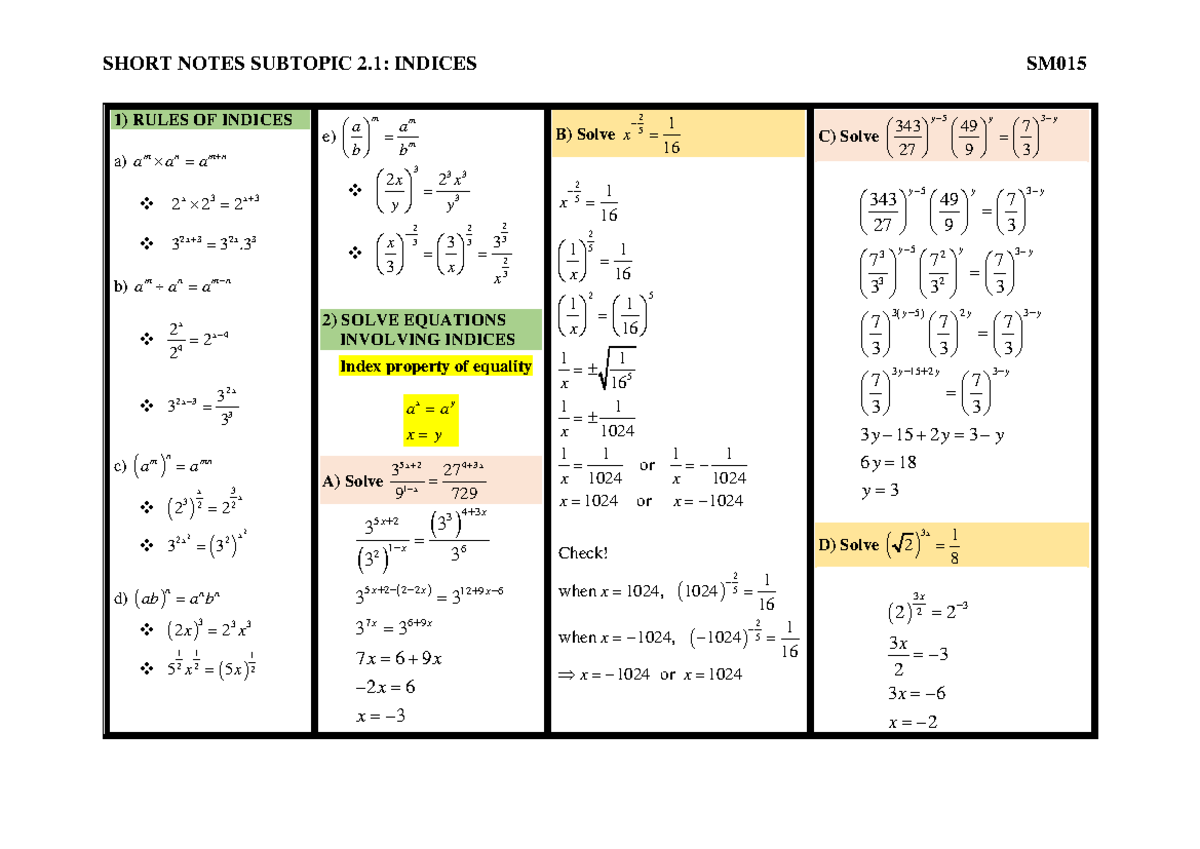 SHORT NOTES SUBTOPIC 2.1: INDICES SM015
1) RULES OF INDICES
a) a^m × a^n = a^(m+n)
❖ 2^x × 2^3 = 2^(x+3)
❖ 3^(2x+3) = 3^(2x).3^3
b) a^m ÷ a^n = a^(m−n)
❖ 2^x/2^4 = 2^(x−4)
❖ 3^(2x−3) = 3^(2x)/3^3
c) (a^m)^n = a^(mn)
❖ (2^3)^(x/2) = 2^((3/2)x)
❖ 3^(2x^2) = (3^2)^(x^2)
d) (ab)^n = a^n b^n
❖ (2x)^3 = 2^3 x^3
❖ 5^(1/2) x^(1/2) = (5x)^(1/2)
e) (a/b)^m = a^m/b^m
❖ (2x/y)^3 = 2^3 x^3/y^3
❖ (x/3)^(−2/3) = (3/x)^(2/3) = 3^(2/3)/x^(2/3)
2) SOLVE EQUATIONS
INVOLVING INDICES
Index property of equality
a^x = a^y
x = y
A) Solve 3^(5x+2)/9^(1−x) = 27^(4+3x)/729
3^(5x+2)/(3^2)^(1−x) = (3^3)^(4+3x)/3^6
3^(5x+2−(2−2x)) = 3^(12+9x−6)
3^(7x) = 3^(6+9x)
7x = 6 + 9x
−2x = 6
x = −3
B) Solve x^(−2/5) = 1/16
x^(−2/5) = 1/16
(1/x)^(2/5) = 1/16
(1/x)^2 = (1/16)^5
1/x = ±√(1/16^5)
1/x = ± 1/1024
1/x = 1/1024 or 1/x = − 1/1024
x = 1024 or x = −1024
Check!
when x = 1024, (1024)^(−2/5) = 1/16
when x = −1024, (−1024)^(−2/5) = 1/16
⇒ x = −1024 or x = 1024
C) Solve (343/27)^(y−5) (49/9)^y = (7/3)^(3−y)
(343/27)^(y−5) (49/9)^y = (7/3)^(3−y)
(7^3/3^3)^(y−5) (7^2/3^2)^y = (7/3)^(3−y)
(7/3)^(3(y−5)) (7/3)^(2y) = (7/3)^(3−y)
(7/3)^(3y−15+2y) = (7/3)^(3−y)
3y − 15 + 2y = 3 − y
6y = 18
y = 3
D) Solve (√2)^(3x) = 1/8
(2)^(3x/2) = 2^(−3)
3x/2 = −3
3x = −6
x = −2